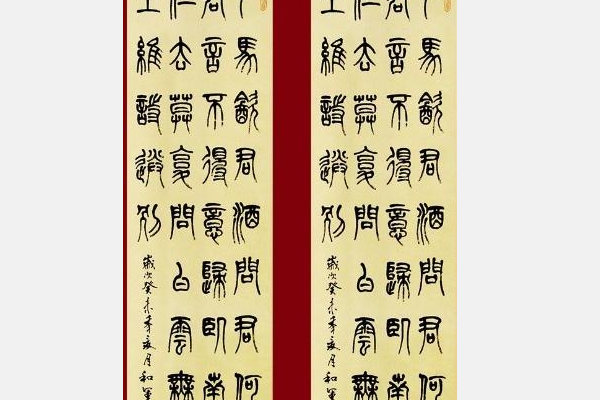 下馬飲君酒問君何
君言不得意歸臥南
但去莫复問白雲無
王維詩送別
歲次癸未季夏月和軍
下馬飲君酒問君何
君言不得意歸臥南
但去莫复問白雲無
王維詩送別
歲次癸未季夏月和軍